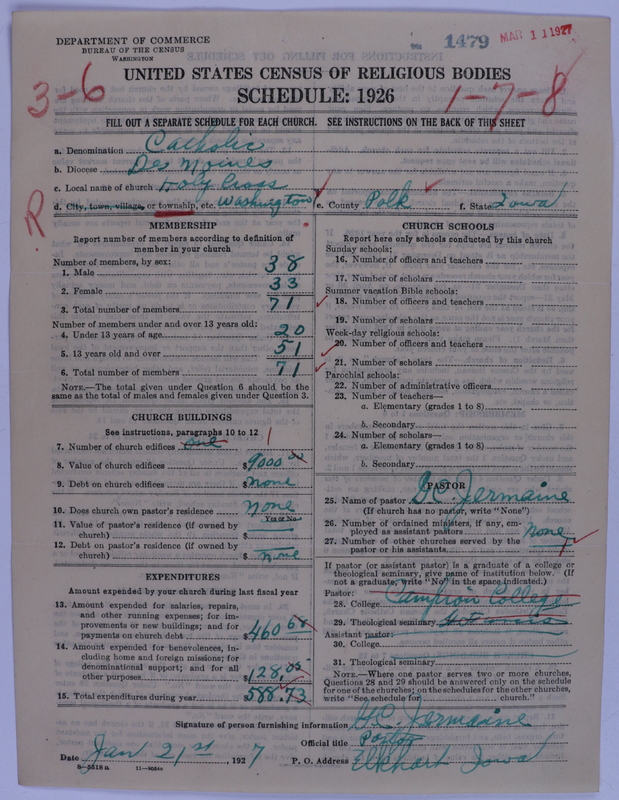 DEPARTMENT OF COMMERCE
BUREAU OF THE CENSUS
WASHINGTON
1479
MAR 11 1927
UNITED STATES CENSUS OF RELIGIOUS BODIES
SCHEDULE: 1926
3-6
1-7-8
FILL OUT A SEPARATE SCHEDULE FOR EACH CHURCH. SEE INSTRUCTIONS ON THE BACK OF THIS SHEET
a. Denomination Catholic
b. Diocese Des Moines
c. Local name of church Holy Cross
d. City, town, village, or township, etc. Washington e. County Polk f. State Iowa
R
MEMBERSHIP
Report number of members according to definition of
member in your church
Number of members, by sex:
1. Male 38
2. Female 33
3. Total number of members 71
Number of members under and over 13 years old:
4. Under 13 years of age 20
5. 13 years old and over 51
6. Total number of members 71
NOTE.—The total given under Question 6 should be
same as the total of males and females given under Question 3.
CHURCH BUILDINGS
See instructions, paragraphs 10 to 12
7. Number of church edifices one 1
8. Value of church edifices $9000 00
9. Debt on church edifices $None
10. Does church own pastor's residence None
Yes or No
11. Value of pastor's residence (if owned by
church) $
12. Debt on pastor's residence (if owned by
church) $None
EXPENDITURES
Amount expended by your church during last fiscal year
13. Amount expended for salaries, repairs,
and other running expenses; for im-
provements or new buildings; and for
payments on church debt $460 68
14. Amount expended for benevolences, in-
cluding home and foreign missions; for
denominational support; and for all
other purposes $128,05
15. Total expenditures during year 588.73
CHURCH SCHOOLS
Report here only schools conducted by this church
Sunday schools:
16. Number of officers and teachers
17. Number of scholars
Summer vacation Bible schools:
18. Number of officers and teachers
19. Number of scholars
Week-day religious schools:
20. Number of officers and teachers
21. Number of scholars
Parochial schools:
22. Number of administrative officers
23. Number of teachers—
a. Elementary (grades 1 to 8)
b. Secondary
24. Number of scholars—
a. Elementary (grades 1 to 8)
b. Secondary
PASTOR
25. Name of pastor G.C. Jermaine
(If church has no pastor, write "None")
26. Number of ordained ministers, if any, em-
ployed as assistant pastors None
27. Number of other churches served by the
pastor or his assistants
If pastor (or assistant pastor) is a graduate of a college or
theological seminary, give name of institution below. (If
not a graduate, write "No" in the space indicated.)
Pastor:
28. College Campion College
29. Theological seminary
Assistant pastor:
30. College
31. Theological seminary
NOTE.—Where one pastor serves two or more churches,
Questions 28 and 29 should be answered only on the schedule
for one of the churches; on the schedules for the other churches,
write "See schedule for church."
Signature of person furnishing information G.C. Jermaine
Official title Pastor
Date Jan 21st, 1927 P. O. Address Elkhart Iowa
8-5518a 11-9054a